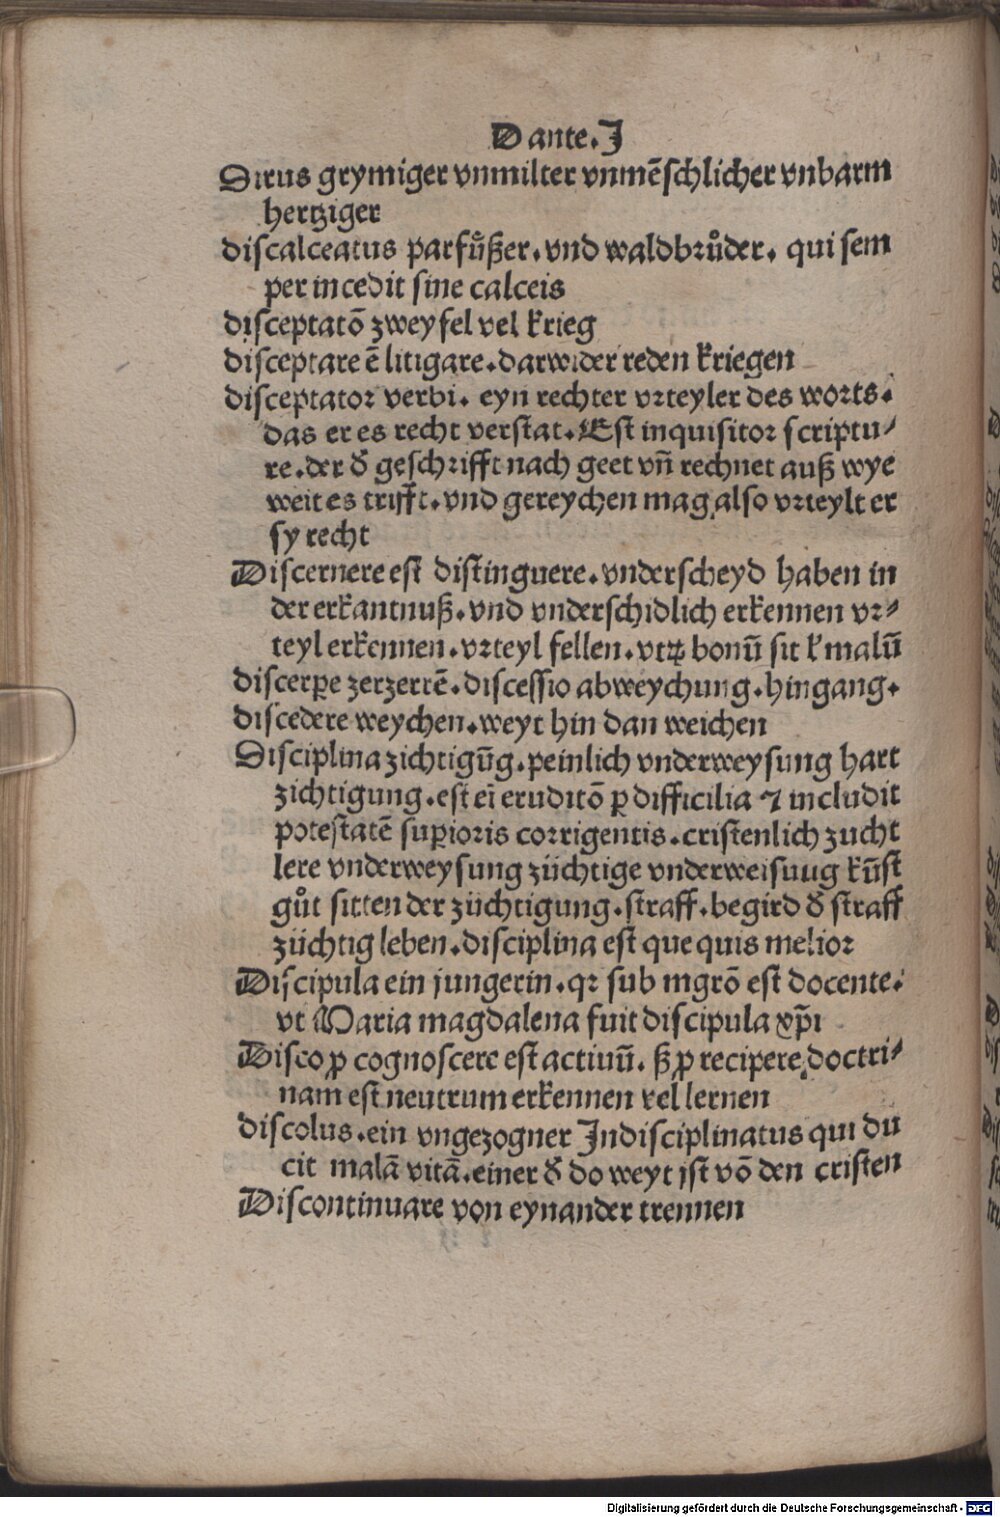 Dante.J
Dirus grymiger vnmilter vnmēschlicher vnbarm
hertziger
discalceatus parfüßer. vnd waldbrůder. qui sem
per incedit sine calceis
disceptatō zweyfel vel krieg
disceptare ē litigare. darwider reden kriegen
disceptator verbi. eyn rechter vrteyler des worts.
das er es recht verstat. Est inquisitor scriptu⸗
re. der d̕ geschrifft nach geet vñ rechnet auß wye
weit es trifft. vnd gereychen mag, also vrteylt er
sy recht
Discernere est distinguere. vnderscheyd haben in
der erkantnuß. vnd vnderschidlich erkennen vr⸗
teyl erkennen. vrteyl fellen. vtꝝ bonū sit ł malū
discerꝑe zerzerrē. discessio abweychung. hingang.
discedere weychen. weyt hin dan weichen
Disciplina zichtigūg. peinlich vnderweysung hart
zichtigung. est eī eruditō ꝑ difficilia ⁊ includit
potestatē suꝑioris corrigentis. cristenlich zucht
lere vnderweysung züchtige vnderweisuug kūst
gůt sitten der züchtigung. straff. begird d̕ straff
züchtig leben. disciplina est que quis melior
Discipula ein jungerin. qꝛ sub mgrō est docente.
vt Maria magdalena fuit discipula xp̄i
Disco ꝓ cognoscere est actiuū. ß ꝓ recipere doctri⸗
nam est neutrum erkennen vel lernen
discolus. ein vngezogner Indisciplinatus qui du
cit malā vitā. einer d̕ do weyt ist vō den cristen
Discontinuare von eynander trennen
Digitalisierung gefördert durch die Deutsche Forschungsgemeinschaft - DFG